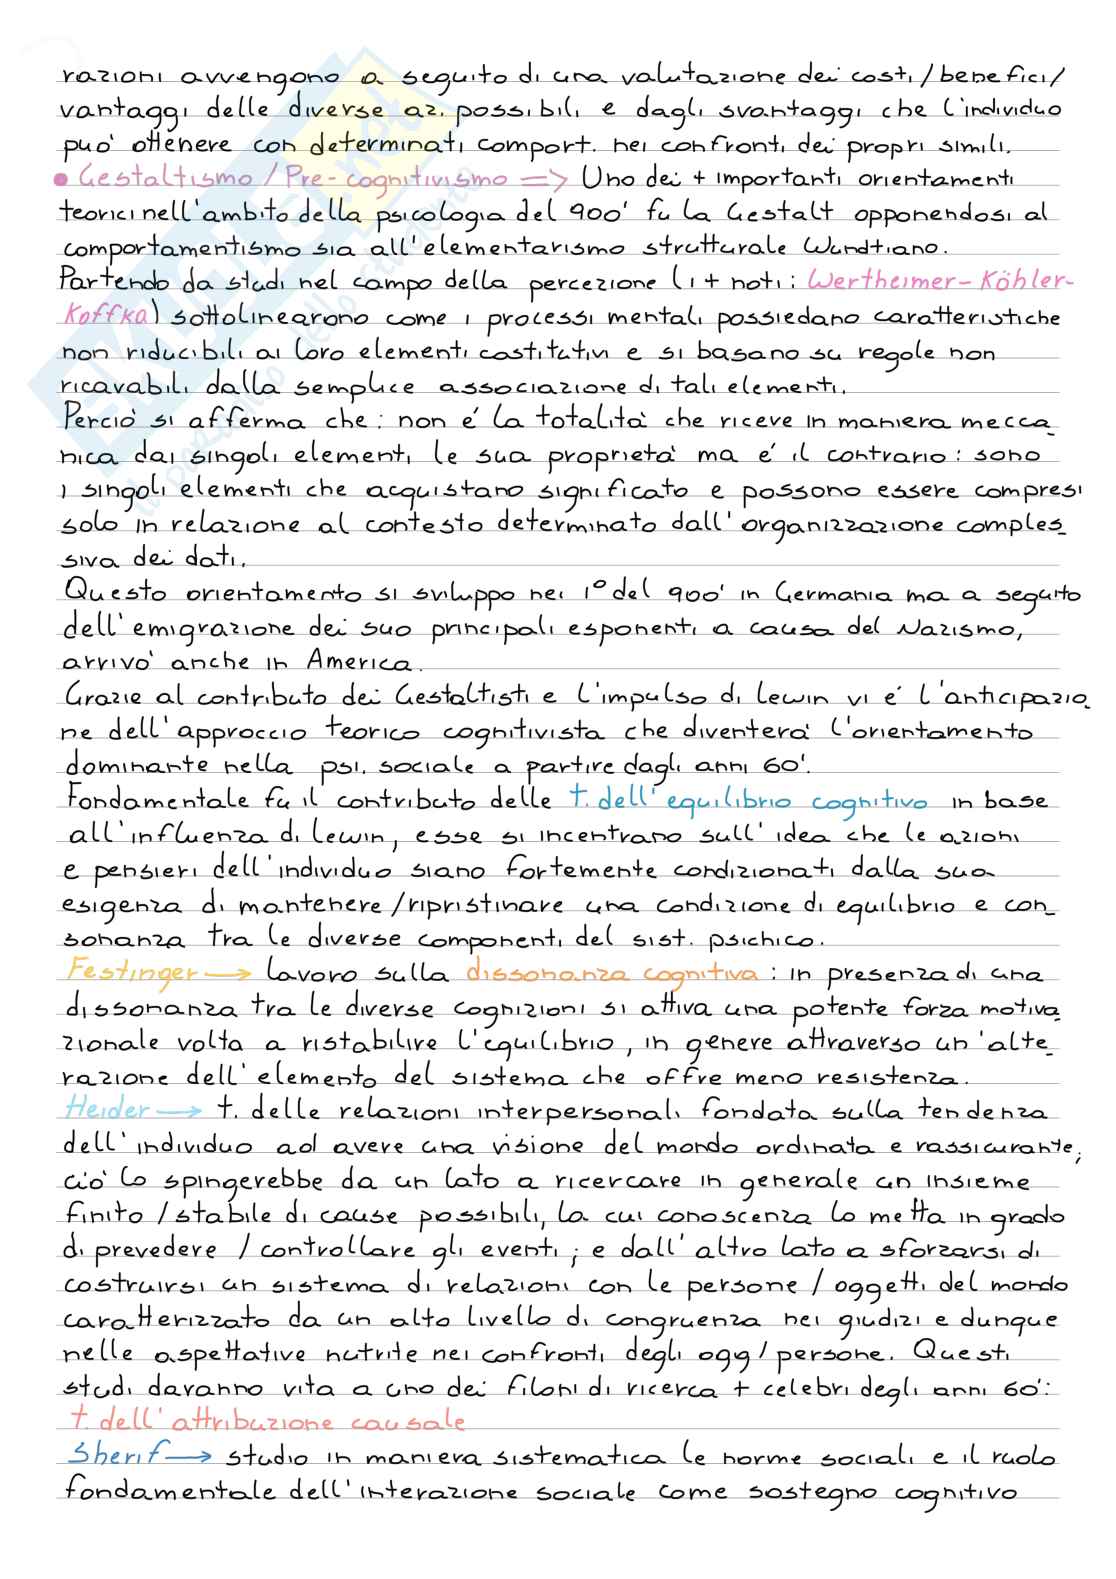 razioni avvengono a seguito di una valutazione dei costi/benefici/
vantaggi delle diverse az. possibili e dagli svantaggi che l'individuo
può ottenere con determinati comport. nei confronti dei propri simili.
• Gestaltismo / Pre-cognitivismo => Uno dei + importanti orientamenti
teorici nell'ambito della psicologia del 900' fu la Gestalt opponendosi al
comportamentismo sia all'elementarismo strutturale Wundtiano.
Partendo da studi nel campo della percezione (i + noti: Wertheimer-Köhler-
Koffka) sottolinearono come i processi mentali possiedano caratteristiche
non riducibili ai loro elementi costitutivi e si basano su regole non
ricavabili dalla semplice associazione di tali elementi.
Perciò si afferma che: non é la totalità che riceve in maniera mecca_
nica dai singoli elementi le sua proprietà ma é il contrario: sono
i singoli elementi che acquistano significato e possono essere compresi
solo in relazione al contesto determinato dall'organizzazione comples_
siva dei dati.
Questo orientamento si sviluppo nei 1° del 900' in Germania ma a seguito
dell'emigrazione dei suo principali esponenti a causa del Nazismo,
arrivo' anche in America.
Grazie al contributo dei Gestaltisti e l'impulso di Lewin vi é l'anticipazio_
ne dell'approccio teorico cognitivista che diventerà l'orientamento
dominante nella psi. sociale a partire dagli anni 60'.
Fondamentale fu il contributo delle t. dell'equilibrio cognitivo in base
all'influenza di Lewin, esse si incentrano sull'idea che le azioni
e pensieri dell'individuo siano fortemente condizionati dalla sua
esigenza di mantenere/ripristinare una condizione di equilibrio e con_
sonanza tra le diverse componenti del sist. psichico.
Festinger → lavoro sulla dissonanza cognitiva: in presenza di una
dissonanza tra le diverse cognizioni si attiva una potente forza motiva_
zionale volta a ristabilire l'equilibrio, in genere attraverso un'alte_
razione dell'elemento del sistema che offre meno resistenza.
Heider → t. delle relazioni interpersonali fondata sulla tendenza
dell'individuo ad avere una visione del mondo ordinata e rassicurante;
ciò lo spingerebbe da un lato a ricercare in generale un insieme
finito/stabile di cause possibili, la cui conoscenza lo metta in grado
di prevedere / controllare gli eventi; e dall'altro lato a sforzarsi di
costruirsi un sistema di relazioni con le persone / oggetti del mondo
caratterizzato da un alto livello di congruenza nei giudizi e dunque
nelle aspettative nutrite nei confronti degli ogg/persone. Questi
studi davanno vita a uno dei filoni di ricerca + celebri degli anni 60':
t. dell'attribuzione causale
Sherif → studio in maniera sistematica le norme sociali e il ruolo
fondamentale dell'interazione sociale come sostegno cognitivo